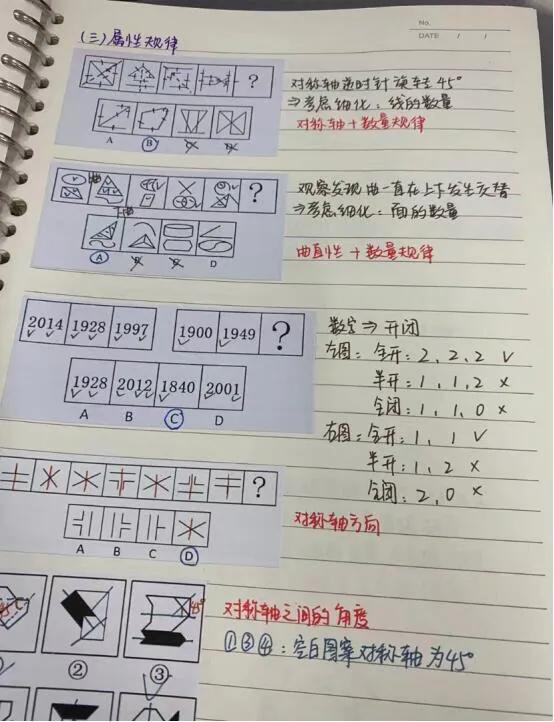 No.
DATE / /
(三)属性规律
?
对称轴逆时针旋转45°
⇒考虑细化:线的数量
对称轴+数量规律
A B
?
观察发现曲一直在上下发生交替
⇒考虑细化:面的数量
曲直性+数量规律
A D
2014 1928 1997 1900 1949 ?
1928 2012 1840 2001
A B C D
数字⇒开闭
左图:全开:2,2,2 √
半开:1,1,2 ×
全闭:1,1,0 ×
右图:全开:1,1 √
半开:1,2 ×
全闭:2,0 ×
?
A B C D
对称轴方向
45°
② ③
对称轴之间的角度
①③④:空白图案对称轴为45°